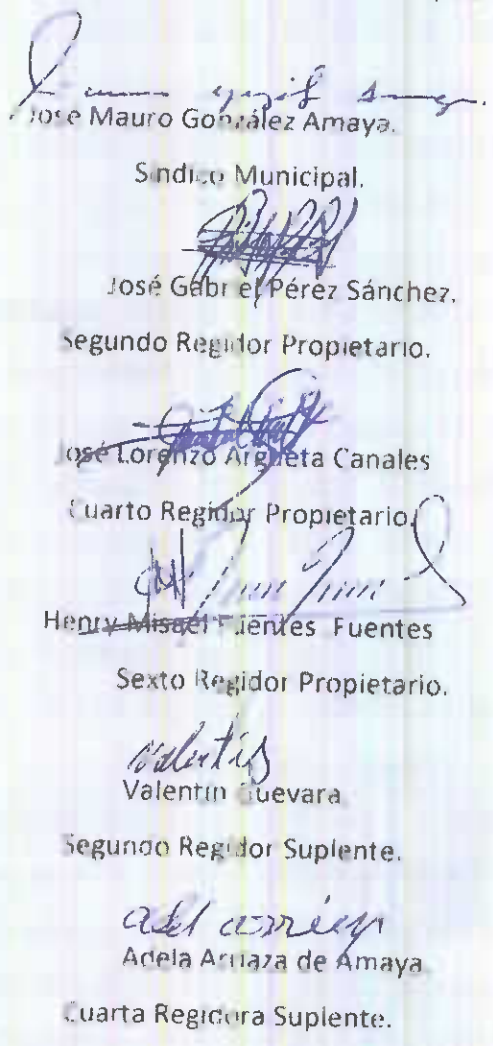 Jose Mauro González Amaya.
Sindico Municipal.
José Gabriel Pérez Sánchez.
Segundo Regidor Propietario.
José Lorenzo Argueta Canales
Cuarto Regidor Propietario.
Henry Misael Fuentes Fuentes
Sexto Regidor Propietario.
Valentin
Valentin Guevara
Segundo Regidor Suplente.
Adela Arriaza de Amaya
Cuarta Regidora Suplente.